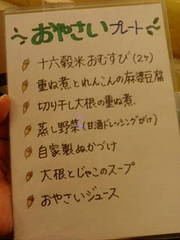 おやさいプレート
十六穀米おむすび(2ヶ)
重ね煮とれんこんの麻婆豆腐
切り干し大根の重ね煮
蒸し野菜(甘酒ドレッシングがけ)
自家製ぬかづけ
大根とじゃこのスープ
おやさいジュース